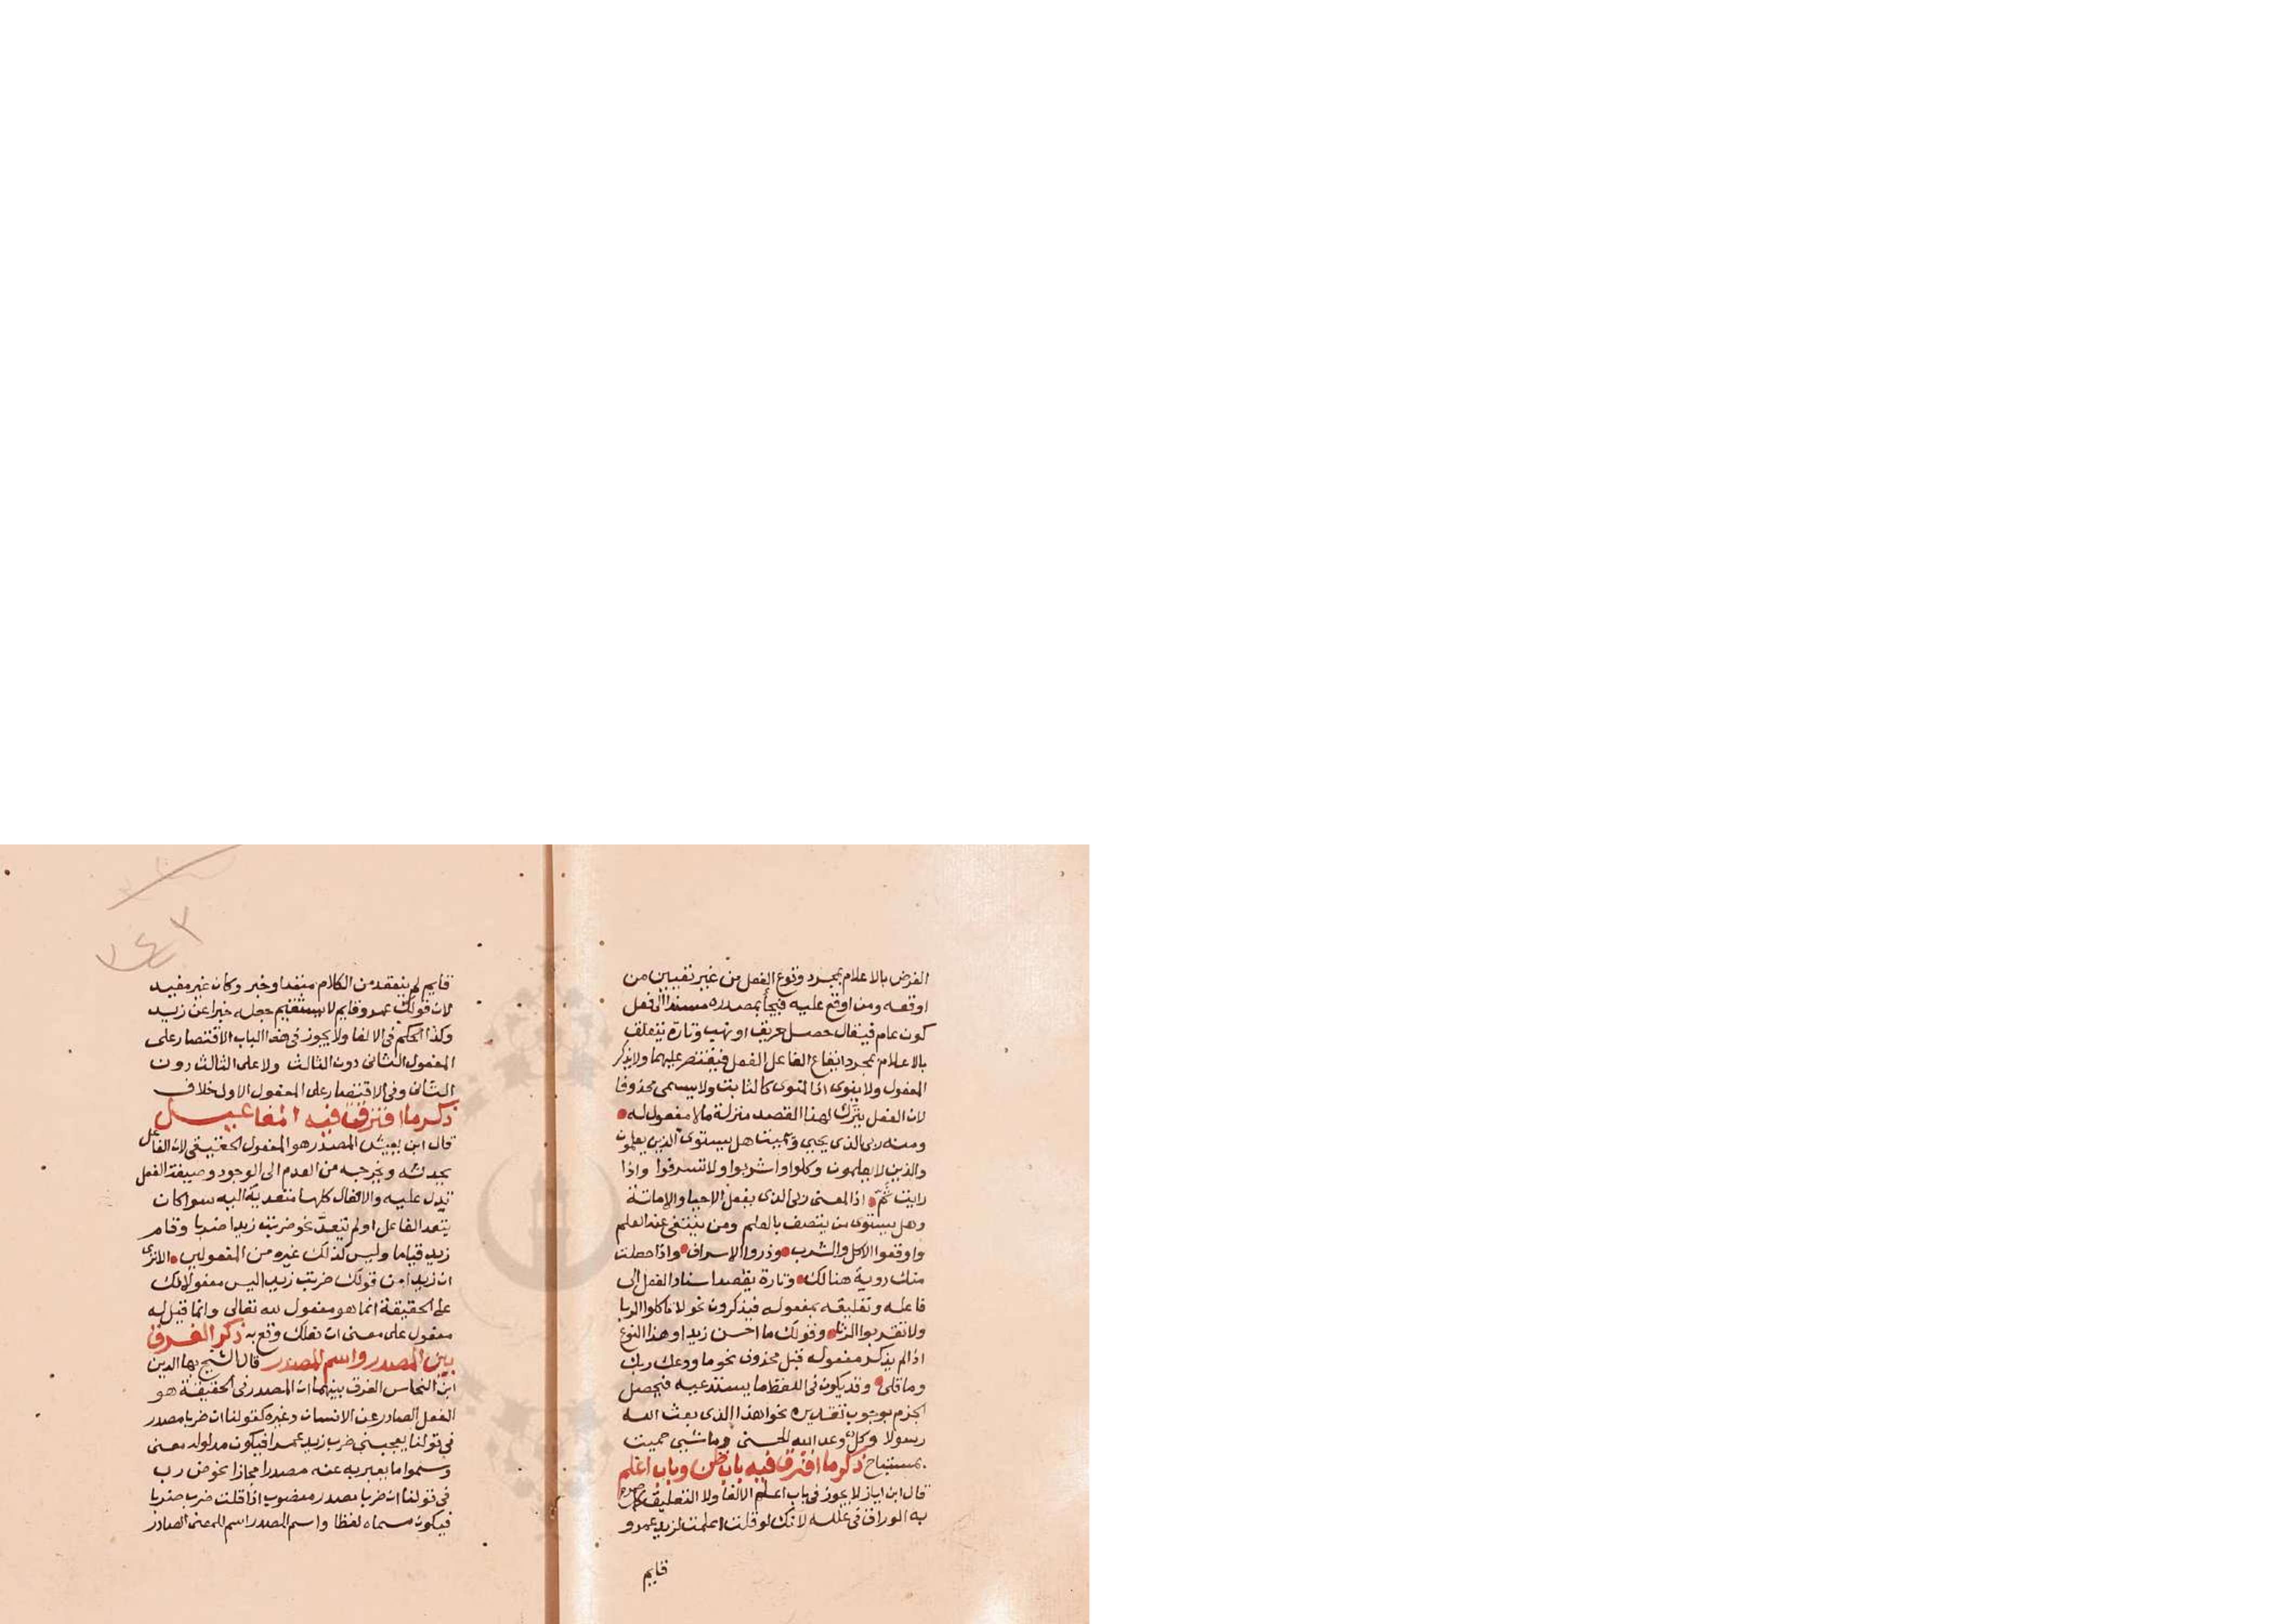 الغرض بالاعلام بمجرد وقوع الفعل من غير تعيين من
اوقعه ومن اوقع عليه فيجأ بمصدره مسندا الى فعل
كون عام فيقال حصل حريق او نهب وتارة يتعلق
بالاعلام بمجرد ايقاع الفاعل الفعل فيقتصر عليهما ولا يذكر
المفعول ولا ينوى اذ المنوى كالثابت ولا يسمى محذوفا
لان الفعل ينزل لهذا القصد منزلة ما لا مفعول له
ومنه ربى الذى يحيى ويميت هل يستوى الذين يعلمون
والذين لا يعلمون وكلوا واشربوا ولا تسرفوا واذا
رايت ثم اذ المعنى ربى الذى يفعل الاحيا والاماتة
وهل يستوى من يتصف بالعلم ومن ينتفى عنه العلم
واوقعوا الاكل والشرب وذروا الاسراف واذا حصلت
منك روية هنالك وتارة يقصد اسناد الفعل الى
فاعله وتعليقه بمفعوله فيذكرون نحو لا تاكلوا الربا
ولا تقربوا الزنا وقولك ما احسن زيدا وهذا النوع
اذا لم يذكر مفعوله قيل محذوف نحو ما ودعك ربك
وما قلى وقد يكون فى اللفظ ما يستدعيه فيحصل
الجزم بوجوب تقديره نحو اهذا الذى بعث الله
رسولا وكل وعد الله الحسنى وما شىء حميت
بمستباح ذكر ما افترق فيه باب ظن وباب اعلم
قال ابن اياز لا يجوز فى باب اعلم الالغا ولا التعليق صرح
به الوراق فى علله لانك لو قلت اعلمت لزيد عمرو
قايم
١٤٣
قايم لم ينعقد من الكلام مبتدا وخبر وكان غير مفيد
لان قولك عمرو قايم لا يستقيم جعله خبرا عن زيد
وكذا الحكم فى الالغا ولا يجوز فى هذا الباب الاقتصار على
المفعول الثانى دون الثالث ولا على الثالث دون
الثانى وفى الاقتصار على المفعول الاول خلاف
ذكر ما افترقت فيه المفاعيل
قال ابن يعيش المصدر هو المفعول الحقيقى لان الفاعل
يحدثه ويخرجه من العدم الى الوجود وصيغة الفعل
تدل عليه والافعال كلها متعدية اليه سوا كان
يتعد الفاعل او لم يتعد نحو ضربت زيدا ضربا وقام
زيد قياما وليس كذلك غيره من المفعولين الا ترى
ان زيدا من قولك ضربت زيدا ليس مفعولا لك
على الحقيقة انما هو مفعول لله تعالى وانما قيل له
مفعول على معنى ان فعلك وقع به ذكر الفرق
بين المصدر واسم المصدر قال الشيخ بها الدين
ابن النحاس الفرق بينهما ان المصدر فى الحقيقة هو
الفعل الصادر عن الانسان وغيره كقولنا ان ضربا مصدر
فى قولنا يعجبنى ضرب زيد عمرا فيكون مدلوله معنى
وسموا ما يعبر به عنه مصدرا مجازا نحو ض ر ب
فى قولنا ان ضربا مصدر منصوب اذا قلت ضربت ضربا
فيكون مسماه لفظا واسم المصدر اسم للمعنى الصادر